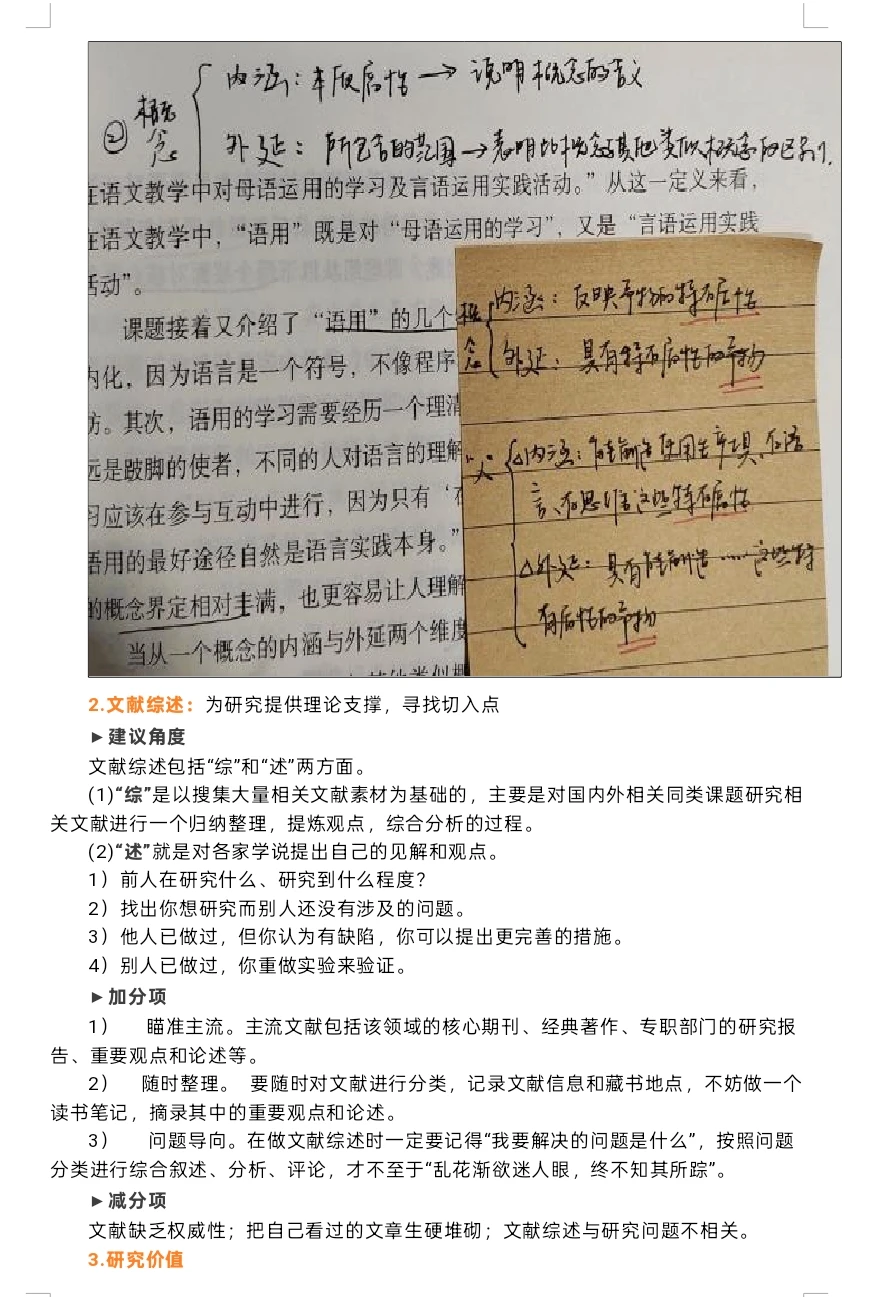 ② 概念
内涵：本质属性 → 说明概念的含义
外延：所包含的范围 → 表明此概念与其他类似概念的区别。
在语文教学中对母语运用的学习及言语运用实践活动。”从这一定义来看，
在语文教学中，“语用”既是对“母语运用的学习”，又是“言语运用实践
活动”。
课题接着又介绍了“语用”的几个
内化，因为语言是一个符号，不像程序
仿。其次，语用的学习需要经历一个理清
远是跛脚的使者，不同的人对语言的理解
习应该在参与互动中进行，因为只有‘在
语用的最好途径自然是语言实践本身。”
的概念界定相对圭满，也更容易让人理解
当从一个概念的内涵与外延两个维度
概念
内涵：反映事物的特有属性
外延：具有特有属性的事物
“人”
△内涵：能制造使用生产工具、有语
言、有思维这些特有属性
△外延：具有能制造……这些特
有属性的事物
2.文献综述：为研究提供理论支撑，寻找切入点
►建议角度
文献综述包括“综”和“述”两方面。
(1)“综”是以搜集大量相关文献素材为基础的，主要是对国内外相关同类课题研究相
关文献进行一个归纳整理，提炼观点，综合分析的过程。
(2)“述”就是对各家学说提出自己的见解和观点。
1）前人在研究什么、研究到什么程度？
2）找出你想研究而别人还没有涉及的问题。
3）他人已做过，但你认为有缺陷，你可以提出更完善的措施。
4）别人已做过，你重做实验来验证。
►加分项
1） 瞄准主流。主流文献包括该领域的核心期刊、经典著作、专职部门的研究报
告、重要观点和论述等。
2） 随时整理。 要随时对文献进行分类，记录文献信息和藏书地点，不妨做一个
读书笔记，摘录其中的重要观点和论述。
3） 问题导向。在做文献综述时一定要记得“我要解决的问题是什么”，按照问题
分类进行综合叙述、分析、评论，才不至于“乱花渐欲迷人眼，终不知其所踪”。
►减分项
文献缺乏权威性；把自己看过的文章生硬堆砌；文献综述与研究问题不相关。
3.研究价值